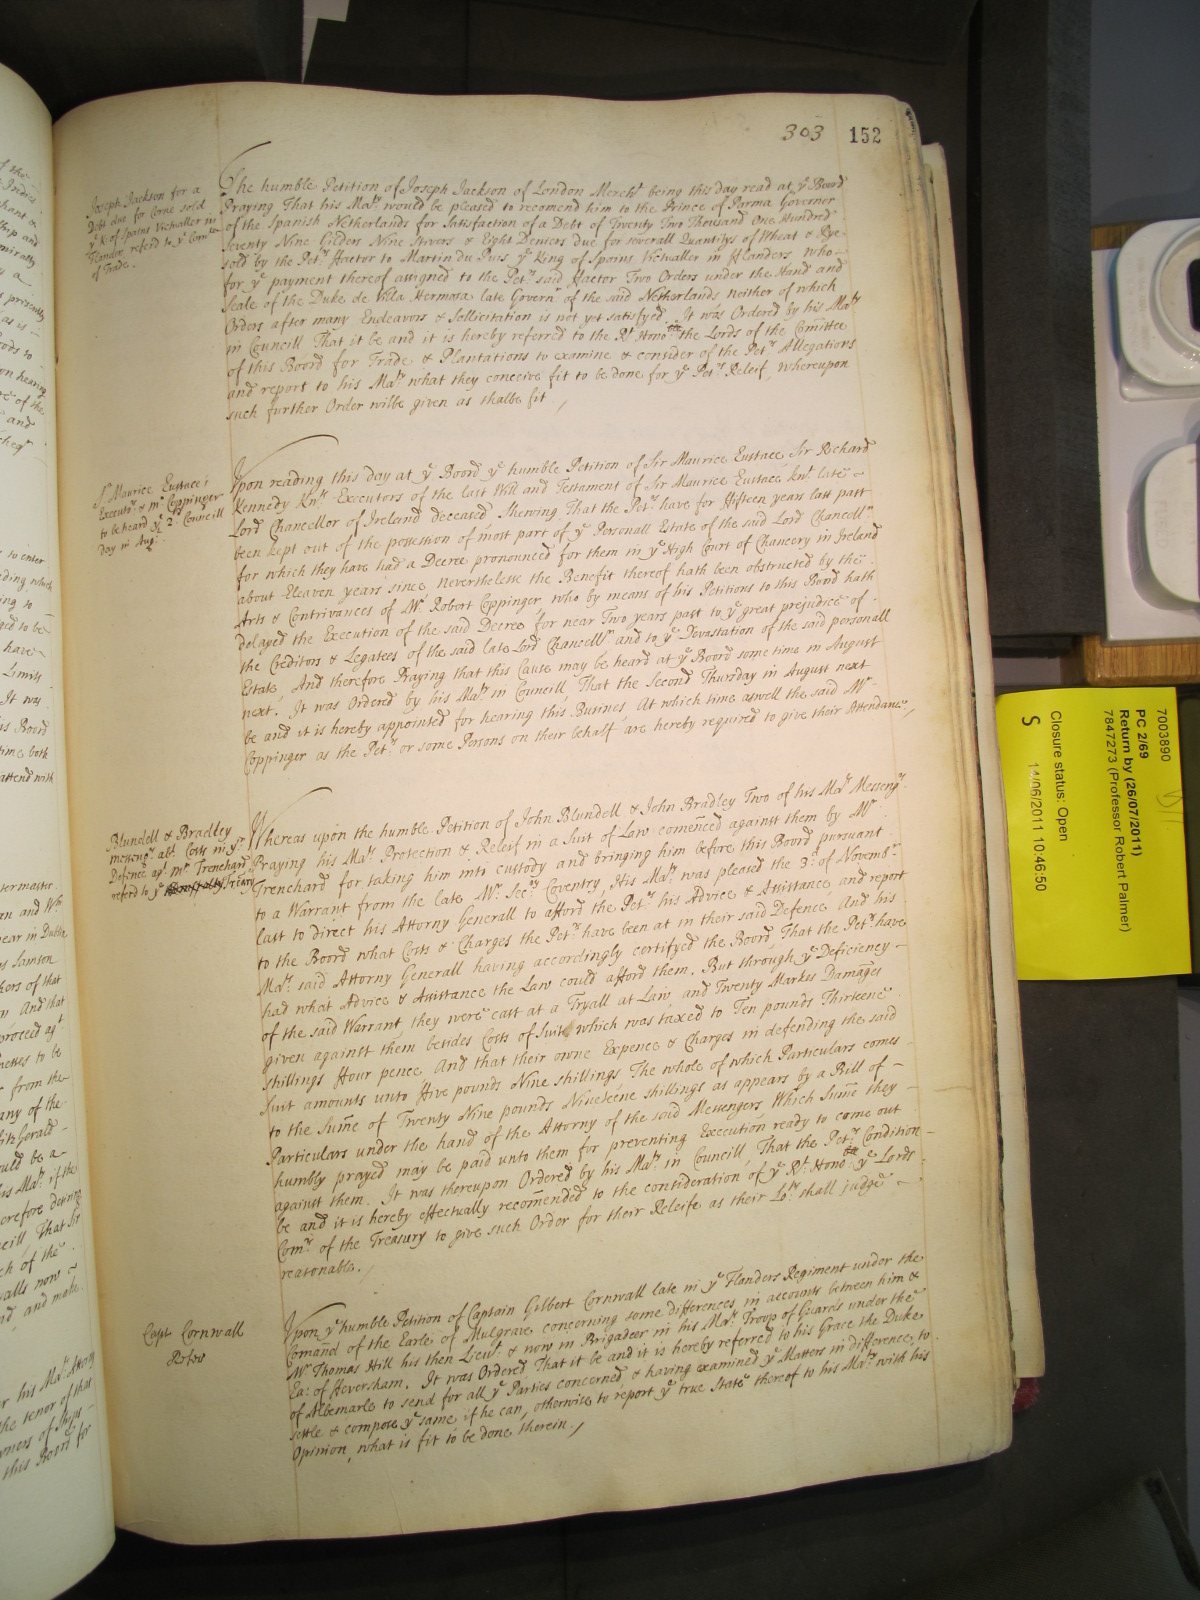 303 152
Joseph Jackson for a
Debt due for Corne sold
yᵉ K. of Spains Victualler in
Flanders referd to yᵉ Comᵗᵉᵉ
of Trade.
The humble Petition of Joseph Jackson of London Merchᵗ being this day read at yᵉ Board
Praying That his Maᵗʸ would be pleased to recomend him to the Prince of Parma Governor
of the Spanish Netherlands for Satisfaction of a Debt of Twenty Two Thousand One Hundred
Seventy Nine Gilders Nine Stivers & Eight Deniers due for severall Quantitys of Wheat & Rye
sold by the Petʳˢ ffactor to Martin du Puis yᵉ King of Spains Victualler in fflanders who
for yᵉ payment thereof assigned to the Petʳˢ said ffactor Two Orders under the Hand and
Seale of the Duke de Villa Hermosa late Governʳ of the said Netherlands neither of which
Orders after many Endeavors & Sollicitation is not yet satisfyed, It was Ordered by his Maᵗʸ
in Councill That it be and it is hereby referred to the Rᵗ Honoᵇˡᵉ the Lords of the Comittee
of this Board for Trade & Plantations to examine & consider of the Petʳˢ Allegations
and report to his Maᵗʸ what they conceive fit to be done for yᵉ Petʳˢ Releif, Whereupon
such further Order wilbe given as shalbe fit,
Sʳ Maurice Eustace's
Executʳˢ & Mʳ Coppinger
to be heard yᵉ 2ᵈ Councill
day in Augᵗ.
Upon reading this day at yᵉ Board yᵉ humble Petition of Sir Maurice Eustace, Sir Richard
Kennedy Knᵗˢ Executors of the last Will and Testament of Sir Maurice Eustace, Knᵗ late
Lord Chancellor of Ireland deceased Shewing That the Petʳˢ have for Fifteen years last past
been kept out of the possession of most part of yᵉ Personall Estate of the said Lord Chancellʳ
for which they have had a Decree pronounced for them in yᵉ High Court of Chancery in Ireland
about Eleaven years since, neverthelesse the Benefit thereof hath been obstructed by the
Arts & Contrivances of Mʳ Robert Coppinger, who by means of his Petitions to this Board hath
delayed the Execution of the said Decree, for near Two years past to yᵉ great prejudice of
the Creditors & Legatees of the said late Lord Chancellʳ and to yᵉ Devastation of the said personall
Estate, And therefore Praying that this Cause may be heard at yᵉ Board some time in August
next. It was Ordered by his Maᵗʸ in Councill, That the Second Thursday in August next
be and it is hereby appointed for hearing this Busines At which time aswell the said Mʳ
Coppinger as the Petʳˢ or some Persons on their behalf are hereby required to give their Attendance,
Blundell & Bradley
messengʳˢ abᵗ Costs in yʳ
Defence agᵗ mʳ Trenchard
referd to yᵉ Trẽary
Whereas upon the humble Petition of John Blundell & John Bradley Two of his Maᵗˢ Messengʳˢ
Praying his Maᵗˢ Protection & Releif in a Suit of Law comenced against them by Mʳ
Trenchard for taking him into custody and bringing him before this Board pursuant
to a Warrant from the late Mʳ Secʳʸ Coventry, His Maᵗʸ was pleased the 3ᵈ of Novembʳ
last to direct his Attorny Generall to afford the Petʳˢ his Advice & Assistance, and report
to the Board what Costs & Charges the Petʳˢ have been at in their said Defence. And his
Maᵗˢ said Attorny Generall having accordingly certifyed the Board, That the Petʳˢ have
had what Advice & Assistance the Law could afford them, But through yᵉ Deficiency
of the said Warrant, they were cast at a Tryall at Law, and Twenty Markes Damages
given against them besides Costs of Suit, which was taxed to Ten pounds Thirteene
shillings ffour pence And that their owne Expence & Charges in defending the said
suit amounts unto ffive pounds Nine shillings, The whole of which Particulars comes
to the Sum̃e of Twenty Nine pounds Nineteene shillings as appears by a Bill of
Particulars under the hand of the Attorny of the said Messengers, Which Sum̃e they
humbly prayed may be paid unto them for preventing Execution ready to come out
against them. It was thereupon Ordered by his Maᵗʸ in Councill, That the Petʳˢ Condition
be and it is hereby effectually recom̃ended to the consideration of yᵉ Rᵗ Honoᵇˡᵉ yᵉ Lords
Comʳˢ of the Treasury to give such Order for their Releife as their Loᵖˢ shall judge
reasonable.
Capt Cornwall
Petiõn
Upon yᵉ humble Petition of Captain Gilbert Cornwall late in yᵉ Flanders Regiment under the
Comand of the Earle of Mulgrave, concerning some differences in accounts between him &
Mʳ Thomas Hill his then Lieuᵗ & now in Brigadeer in his Maᵗˢ Troop of Guards under the
Ea: of ffeversham. It was Ordered That it be and it is hereby referred to his Grace the Duke
of Albemarle to send for all yᵉ Parties concerned, & having examined yᵉ Matters in difference, to
settle & compose yᵉ same if he can, otherwise to report yᵉ true State thereof to his Maᵗʸ with his
Opinion, what is fit to be done therein,
7003890
PC 2/69
Return by (26/07/2011)
7847273 (Professor Robert Palmer)
Closure status: Open
S
14/06/2011 10:46:50